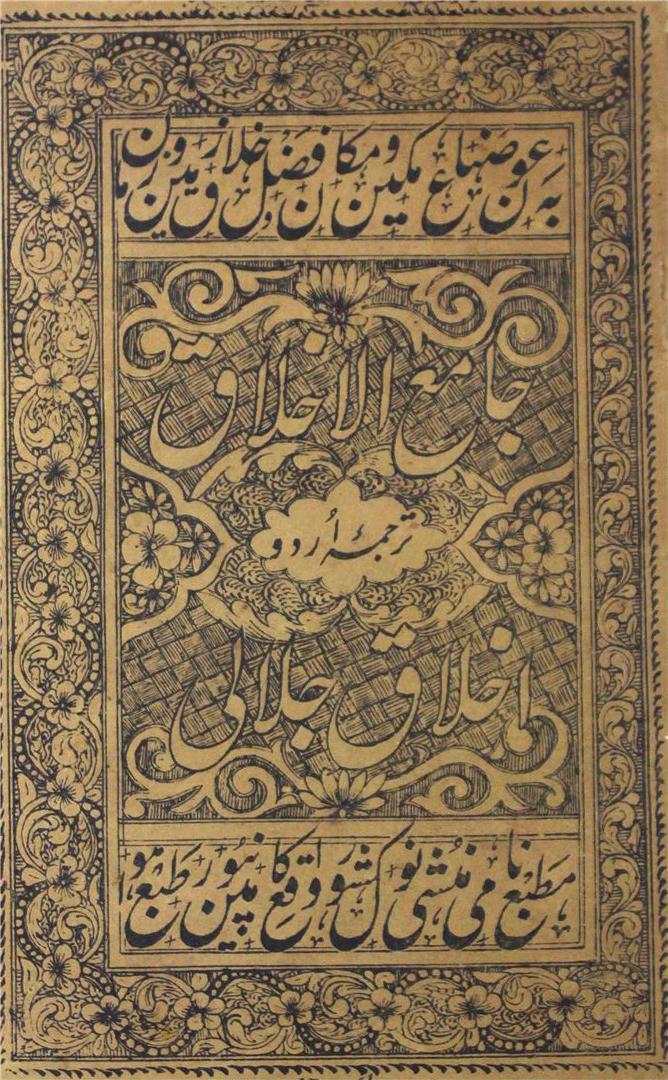 بعون صناع مکین و مکان و فضل خلاق زمین و زمان
جامع الاخلاق
ترجمۂ اردو
اخلاق جلالی
مطبع نامی منشی نولکشور واقع کانپور مین طبع ہوا